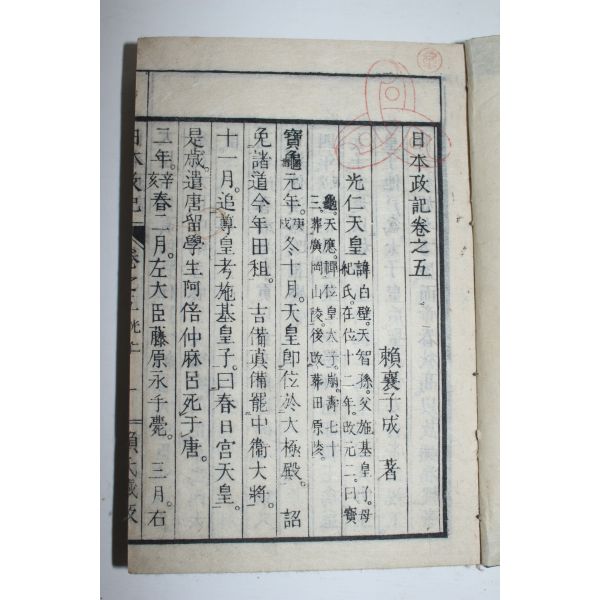 日本政記卷之五
賴襄子成 著
光仁天皇 諱白壁。天智孫。父施基皇子。母
紀氏。在位十二年。改元二。曰寶
龜。天應。禪位皇太子。崩。壽七十
三。葬廣岡山陵。後改葬田原陵。
寶龜元年。庚戌冬十月。天皇即位於大極殿。詔
免諸道今年田租。吉備眞備罷中衞大將。
十一月。追尊皇考施基皇子。曰春日宮天皇。
是歲遣唐留學生阿倍仲麻呂死于唐。
二年。辛亥春二月。左大臣藤原永手薨。三月。右
日本政記 卷之五 光仁 一 賴氏藏板